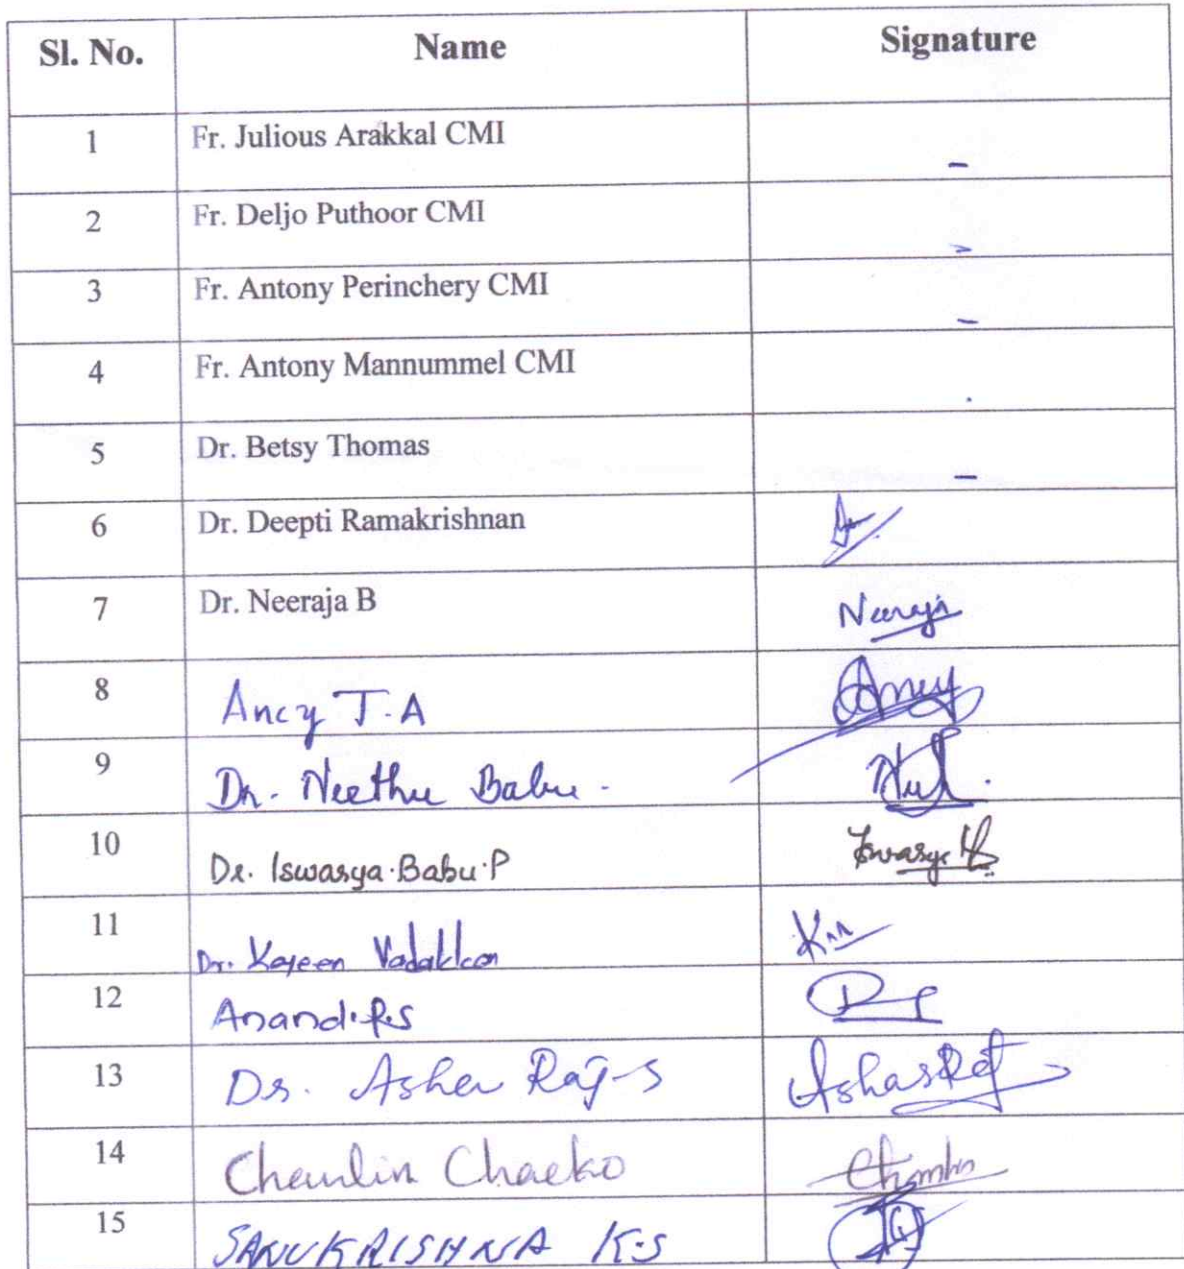 Sl. No. Name Signature
1 Fr. Julious Arakkal CMI -
2 Fr. Deljo Puthoor CMI -
3 Fr. Antony Perinchery CMI -
4 Fr. Antony Mannummel CMI .
5 Dr. Betsy Thomas -
6 Dr. Deepti Ramakrishnan
7 Dr. Neeraja B Neeraja
8 Ancy T.A Ancy
9 Dr. Neethu Babu.
10 Dr. Iswarya.Babu.P Iswarya
11 Dr. Vadakkan
12 Anand.P.S
13 Dr. Asha Raj S AshasRaj
14 Chacko
15 SANUKRISHNA K.S